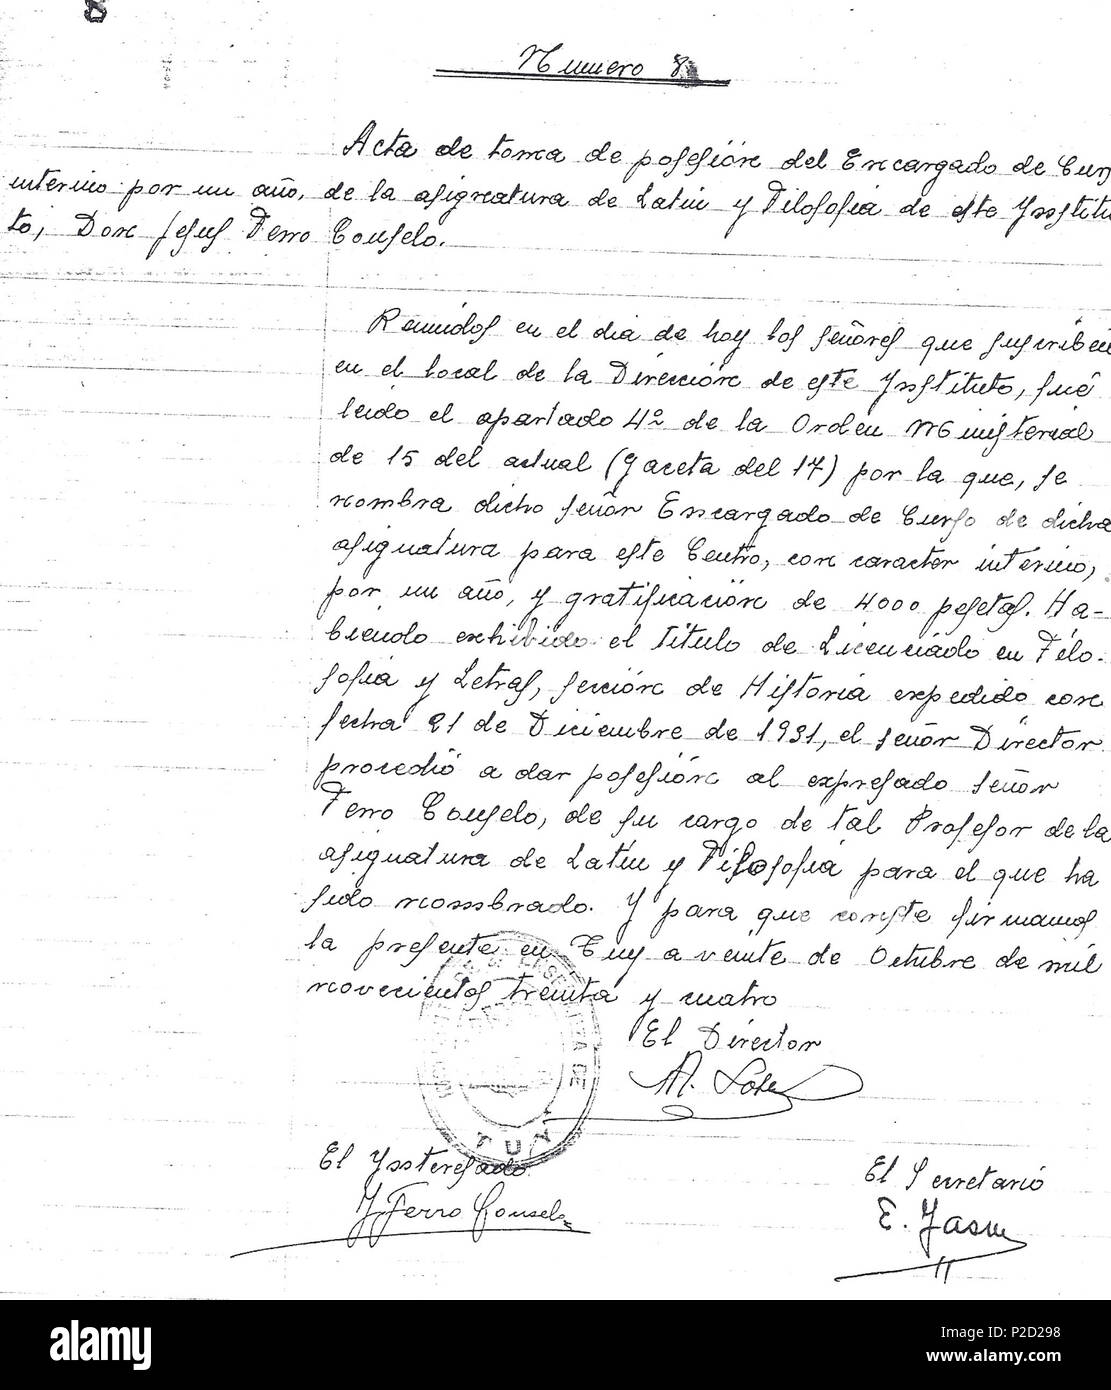 Numero 8
Acta de toma de posesión del Encargado de Curs
interino por un año, de la asignatura de Latín y Filosofía de este Institu
to, Don Jesus Ferro Couselo.
Reunidos en el dia de hoy los señores que suscriben
en el local de la Dirección de este Instituto, fué
leido el apartado 4º de la Orden Ministerial
de 15 del actual (Gaceta del 17) por la que, se
nombra dicho señor Encargado de Curso de dicha
asignatura para este Centro, con caracter interino,
por un año, y gratificación de 4000 pesetas. Ha-
biendo exhibido el título de Licenciado en Filo-
sofía y Letras, sección de Historia expedido con
fecha 21 de Diciembre de 1931, el señor Director
procedió a dar posesión al expresado señor
Ferro Couselo, de su cargo de tal Profesor de la
asignatura de Latín y Filosofía para el que ha
sido nombrado. Y para que conste firmamos
la presente en Tuy a veinte de Octubre de mil
novecientos treinta y cuatro
El Director
TUY
El Interesado
J Ferro Couselo
El Secretario
alamy
Image ID: P2D298
www.alamy.com